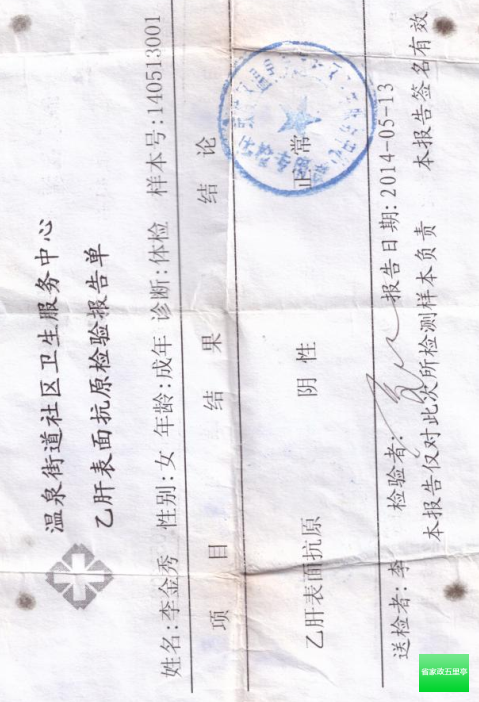 温泉街道社区卫生服务中心
乙肝表面抗原检验报告单
姓名:李金秀 性别:女 年龄:成年 诊断:体检 样本号:140513001
项 目 结 果 结 论
乙肝表面抗原 阴 性 正 常
送检者:李 检验者: 报告日期:2014-05-13
本报告仅对此次所检测样本负责 本报告签名有效
省家政五里亭